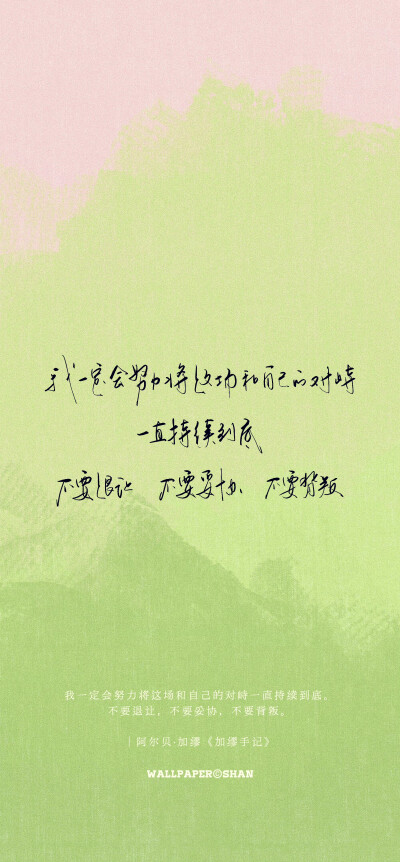 我一定会努力将这场和自己的对峙
一直持续到底
不要退让 不要妥协 不要背叛
我一定会努力将这场和自己的对峙一直持续到底。
不要退让，不要妥协，不要背叛。
｜阿尔贝·加缪《加缪手记》
WALLPAPER©SHAN